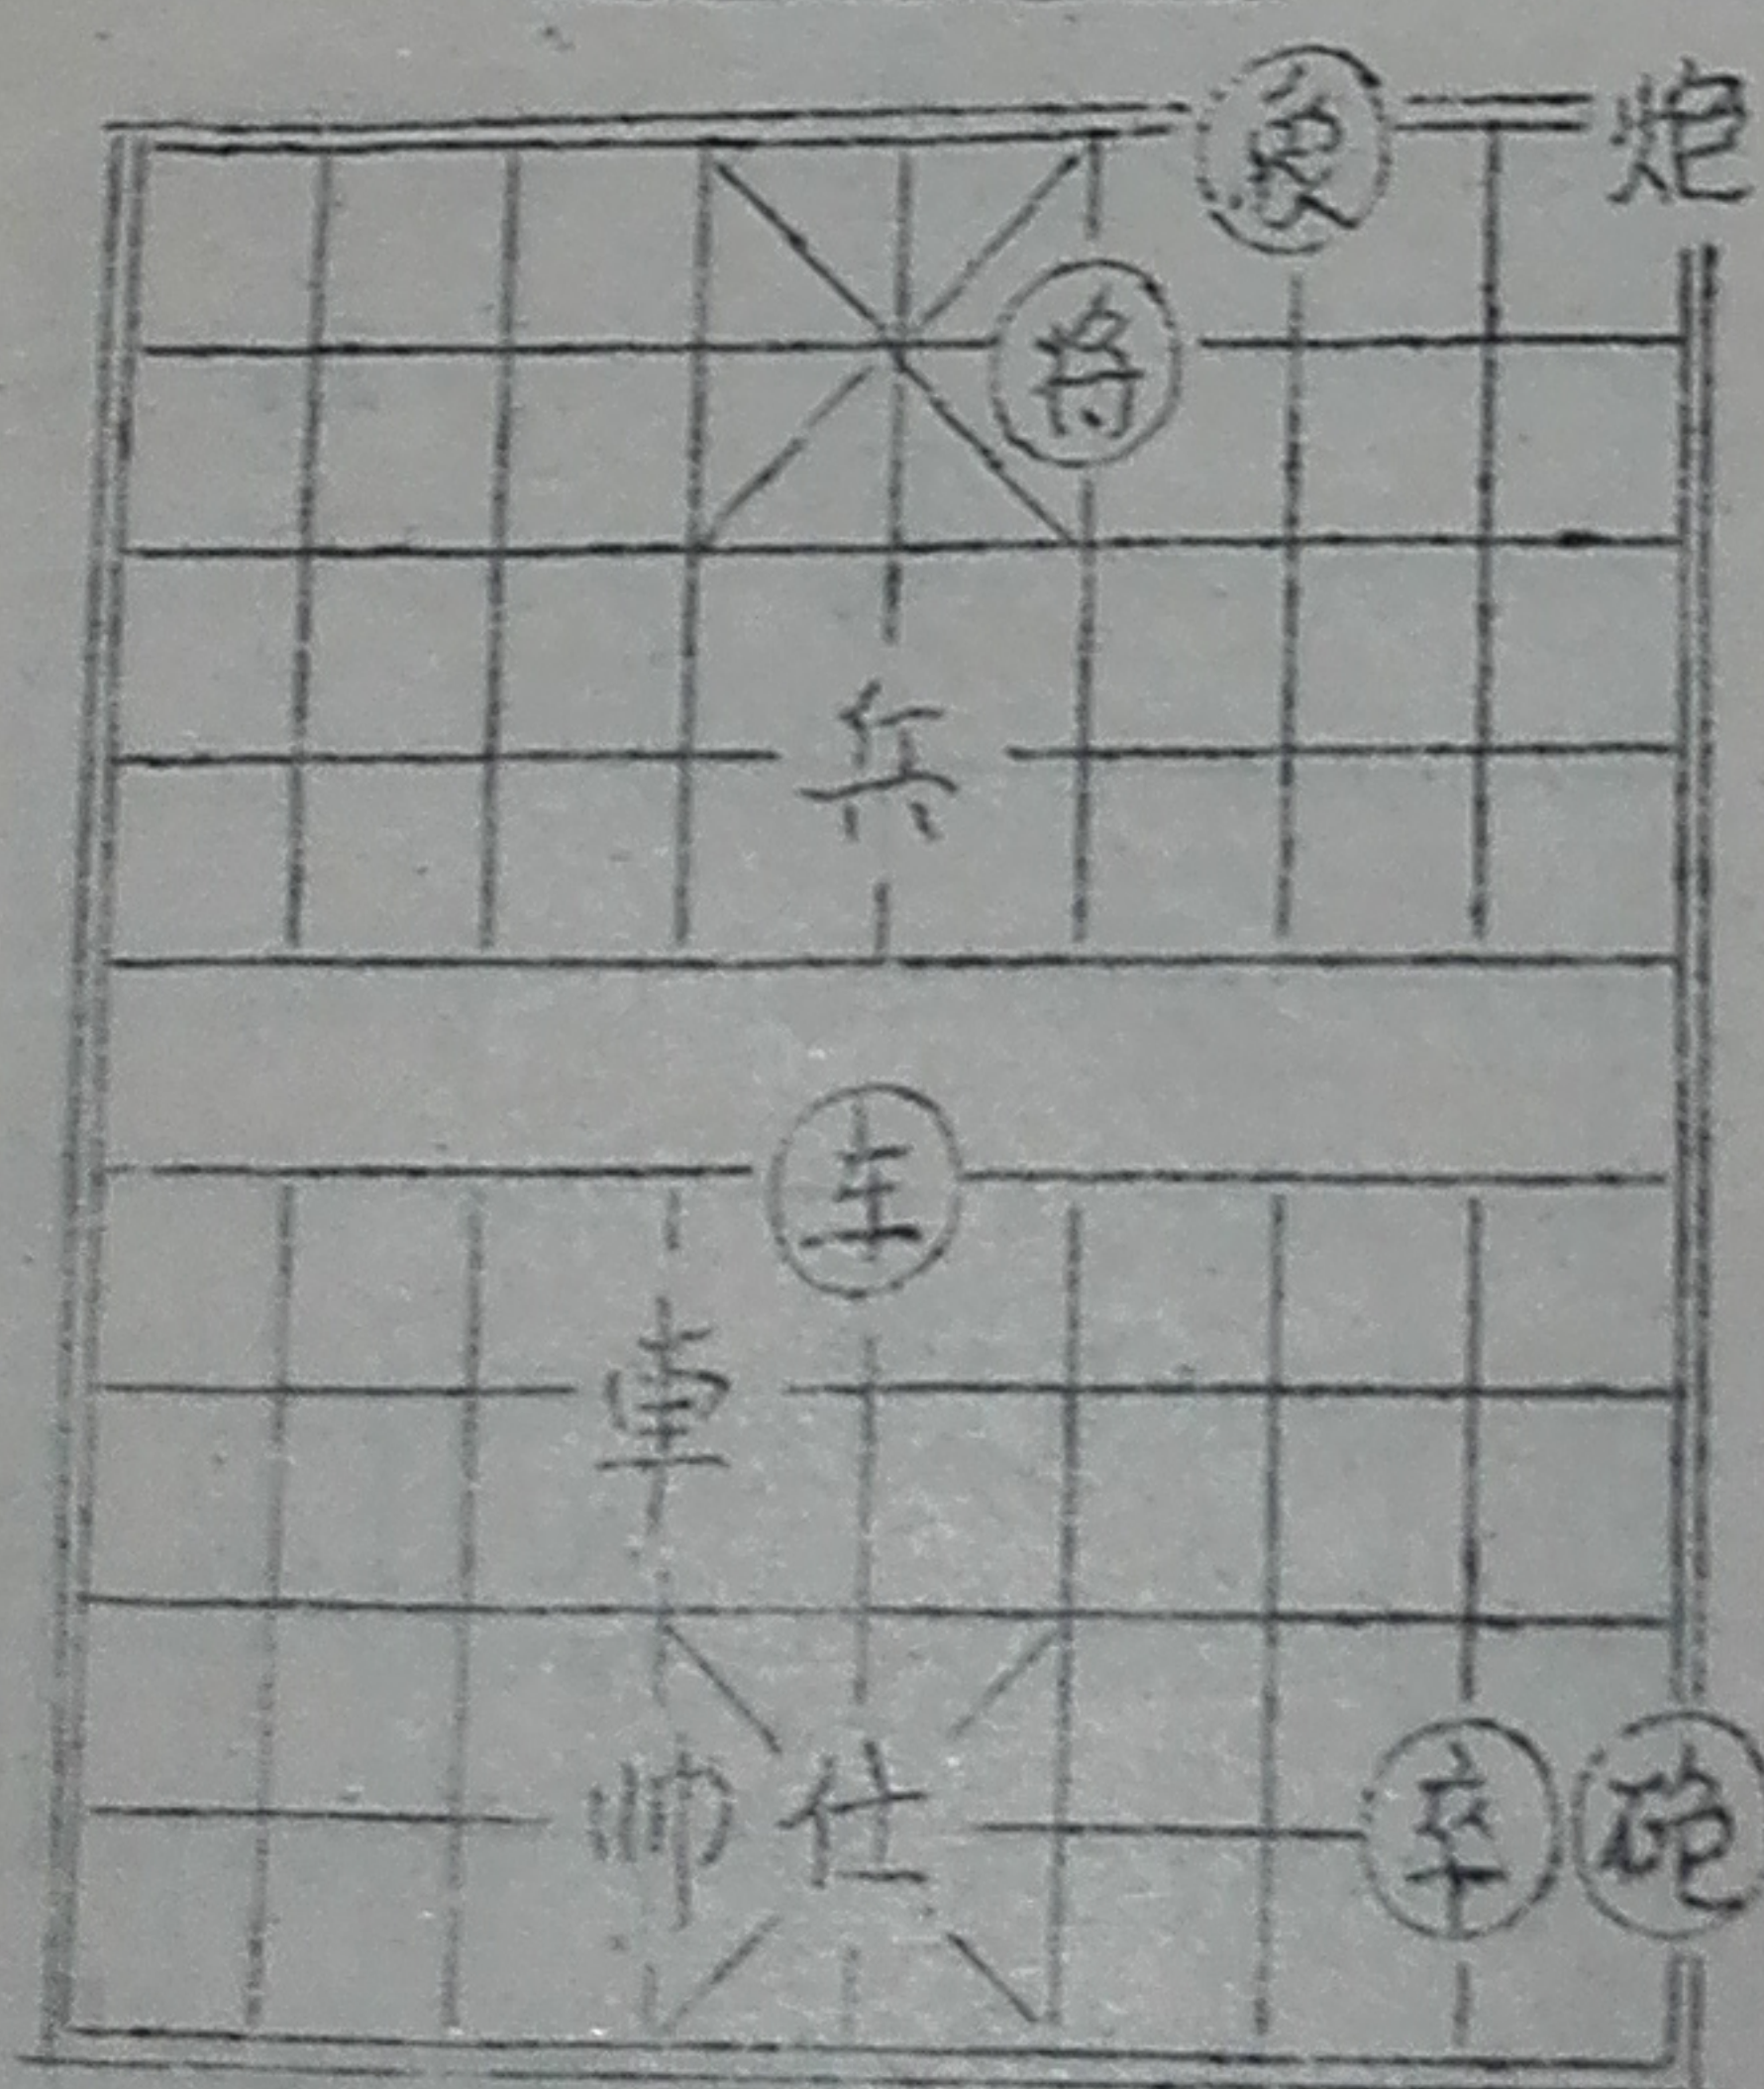 象 炮
将
兵
车
車
帅 仕 卒 砲